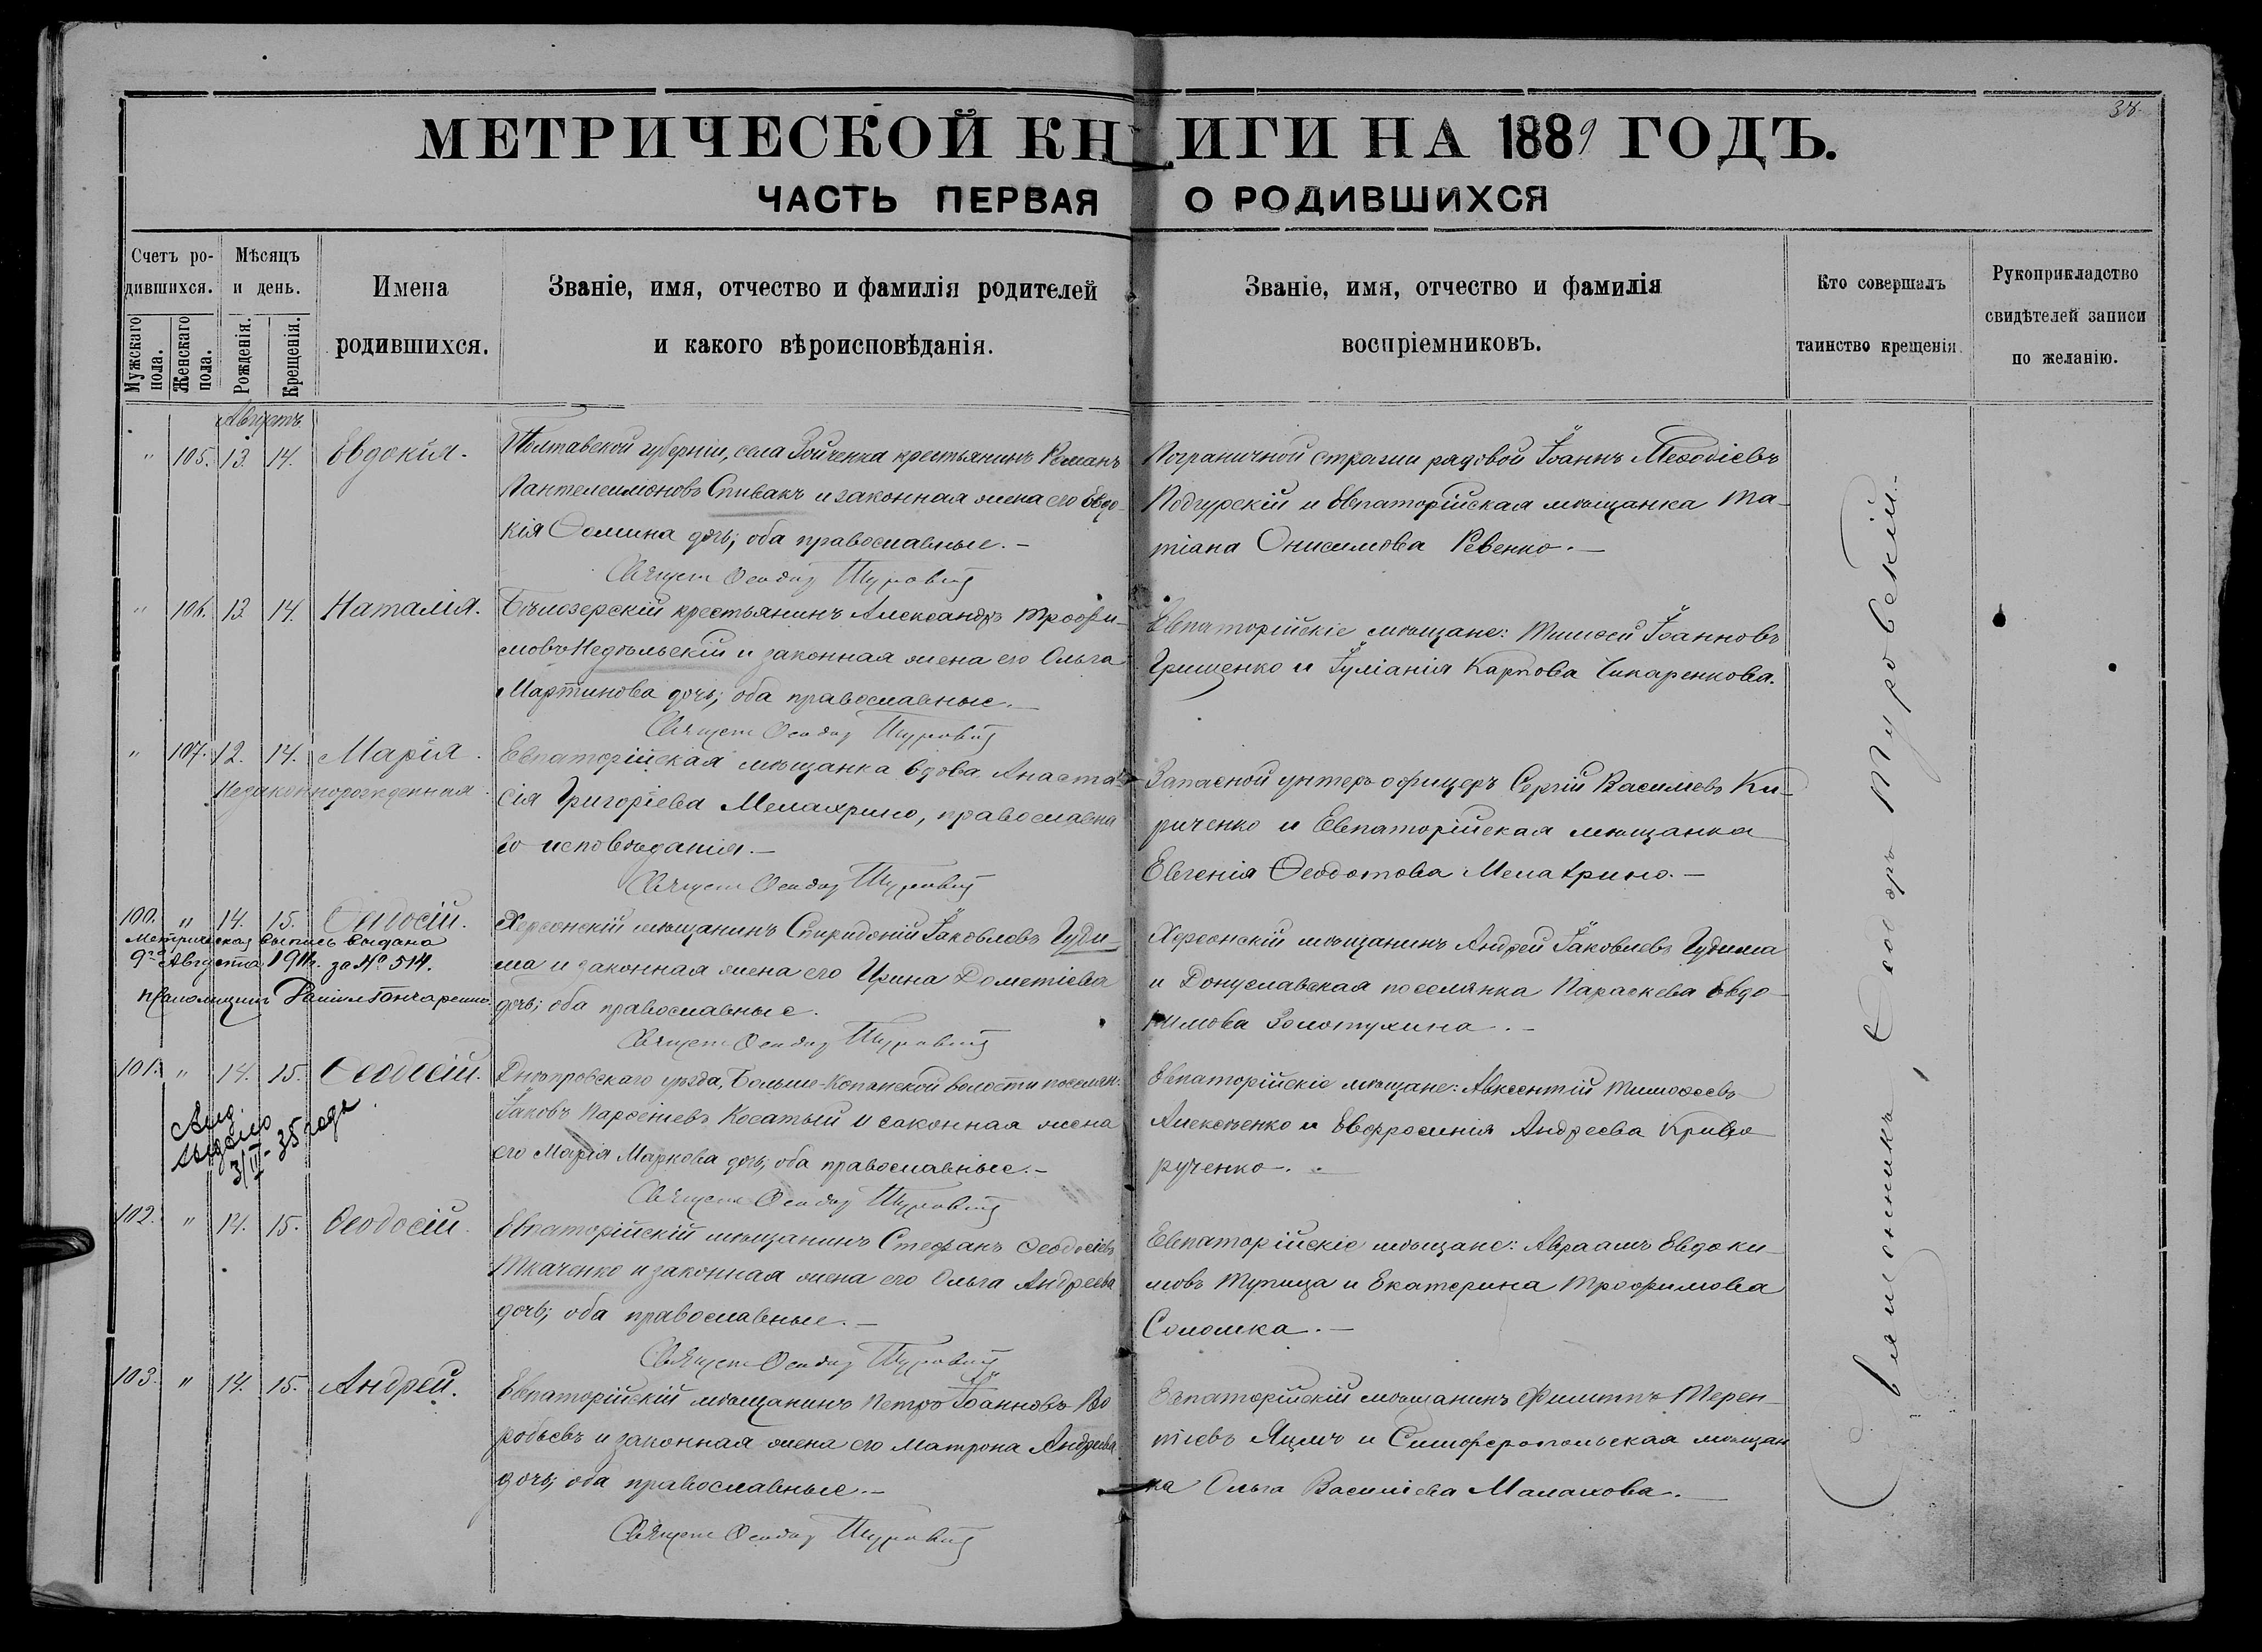 38.
МЕТРИЧЕСКОЙ КНИГИ НА 1889 ГОДЪ.
ЧАСТЬ ПЕРВАЯ О РОДИВШИХСЯ
Счетъ родившихся.
Мужскаго пола.
Женскаго пола.
Мѣсяцъ и день.
Рожденія.
Крещенія.
Имена
родившихся.
Званіе, имя, отчество и фамилія родителей
и какого вѣроисповѣданія.
Званіе, имя, отчество и фамилія
воспріемниковъ.
Кто совершалъ
таинство крещенія.
Рукоприкладство
свидѣтелей записи
по желанію.
Августъ
" 105. 13. 14. Евдокія.
Полтавской губерніи, села крестьянинъ Романъ
Пантелеимоновъ Спивакъ и законная жена его Евдо-
кія Ѳомина дочь; оба православные. –
Священ Ѳеодор Туровскій
Пограничной стражи рядовой Іоаннъ Меѳодіевъ
Подгурскій и Евпаторійская мѣщанка Та-
тіана Онисимова Ревенко. –
" 106. 13. 14. Наталія.
Бѣлозерскій крестьянинъ Александръ Трофи-
мовъ Недѣльскій и законная жена его Ольга
Мартинова дочь; оба православные. –
Священ Ѳеодор Туровскій
Евпаторійскіе мѣщане: Тимоѳей Іоанновъ
Грищенко и Іуліанія Карпова Чикаренкова.
" 107. 12. 14. Марія.
Незаконнорожденная
Евпаторійская мѣщанка вдова Анаста-
сія Григоріева Мелахрино, православна
го исповѣданія. –
Священ Ѳеодор Туровскій
Запасной унтеръ офицеръ Сергій Василіевъ Ки-
риченко и Евпаторійская мѣщанка
Евгенія Ѳеодотова Мелахрино. –
100. " 14. 15. Ѳеодосій.
Метрическая выпись выдана
9го Августа 191 г. за № 514.
Псаломщикъ Гончаренко.
Херсонскій мѣщанинъ Спиридоній Іаковлевъ Гуди-
ма и законная жена его Ирина Дометіева
дочь; оба православные.
Священ Ѳеодор Туровскій
Херсонскій мѣщанинъ Андрей Іаковлевъ Гудима
и Донуславская поселянка Параскева Евдо-
кимова Золотухина. –
101. " 14. 15. Ѳеодосій.
выдано
3/III-35 года
Днѣпровскаго уѣзда, Больше-Копанской волости поселян:
Іаковъ Парѳеніевъ Косатый и законная жена
его Марія Маркова дочь; оба православные. –
Священ Ѳеодор Туровскій
Евпаторійскіе мѣщане: Авксентій Тимоѳеевъ
Алексѣенко и Евфросинія Андреева Криво
рученко. –
102. " 14. 15. Ѳеодосій.
Евпаторійскій мѣщанинъ Стефанъ Ѳеодосіевъ
Ткаченко и законная жена его Ольга Андреева
дочь; оба православные. –
Священ Ѳеодор Туровскій
Евпаторійскіе мѣщане: Авраамъ Евдоки-
мовъ Тупица и Екатерина Трофимова
Соломка. –
103. " 14. 15. Андрей.
Евпаторійскій мѣщанинъ Петръ Іоанновъ Во
робьевъ и законная жена его Матрона Андреева
дочь; оба православные. –
Священ Ѳеодор Туровскій
Евпаторійскій мѣщанинъ Филиппъ Терен-
тіевъ Яцыъ и Симферопольская мѣщан
ка Ольга Василіева Малахова. –
Священникъ, Ѳеодоръ Туровскій. –